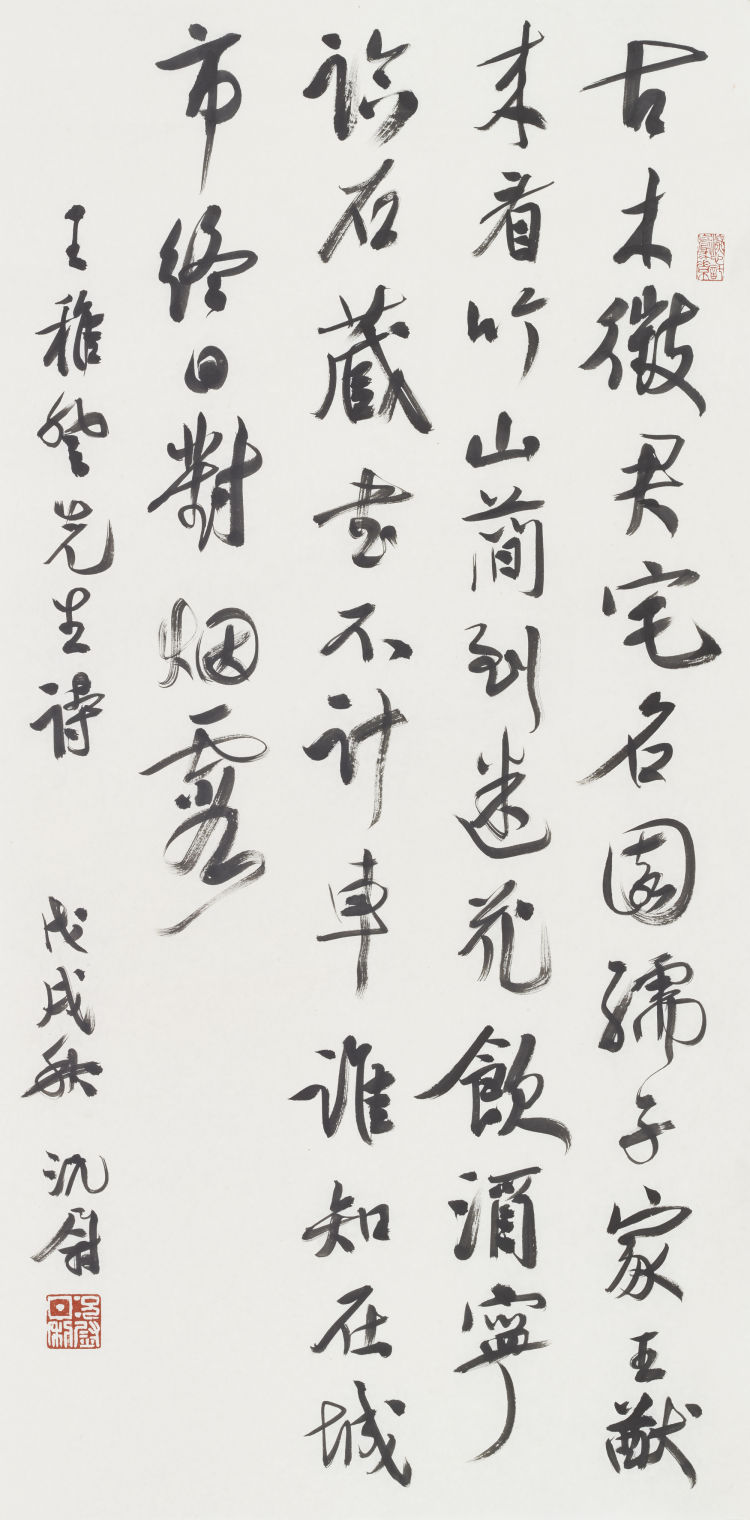 古木徵君宅名園孺子家王猷
来看竹山簡到迷花飲酒寧
論石藏書不計車誰知在城
市終日對烟霞
王稚登先生詩 戊戌秋 沈